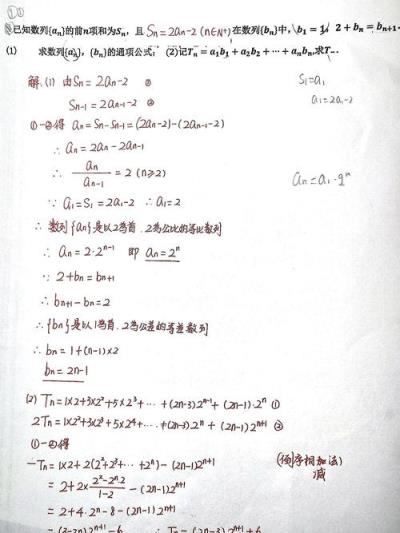 ①
已知数列{aₙ}的前n项和为Sₙ，且 Sₙ=2aₙ-2 (n∈N⁺) 在数列{bₙ}中，b₁=1，2+bₙ=bₙ₊₁
(1) 求数列{aₙ}，{bₙ}的通项公式；(2)记Tₙ=a₁b₁+a₂b₂+⋯+aₙbₙ,求T
解.(1) 由Sₙ=2aₙ-2 ①
S₁=a₁
Sₙ₋₁=2aₙ₋₁-2 ②
a₁=2a₁-2
①-②得 aₙ=Sₙ-Sₙ₋₁=(2aₙ-2)-(2aₙ₋₁-2)
∴ aₙ=2aₙ-2aₙ₋₁
∴ aₙ/aₙ₋₁=2 (n≥2)
aₙ=a₁·qⁿ
∵ a₁=S₁=2a₁-2 ∴a₁=2
∴ 数列{aₙ}是以2为首.2为公比的等比数列
∴ aₙ=2·2ⁿ⁻¹ 即 aₙ=2ⁿ
∵ 2+bₙ=bₙ₊₁
∴ bₙ₊₁-bₙ=2
∴{bₙ}是以1为首.2为公差的等差数列
∴ bₙ=1+(n-1)×2
bₙ=2n-1
(2) Tₙ=1×2+3×2²+5×2³+⋯+(2n-3)2ⁿ⁻¹+(2n-1)·2ⁿ ①
2Tₙ=1×2²+3×2³+5×2⁴+⋯+(2n-3)2ⁿ+(2n-1)2ⁿ⁺¹ ②
①-②得
-Tₙ=1×2+2(2²+2³+⋯+2ⁿ)-(2n-1)2ⁿ⁺¹
(倒序相加法)
减
=2+2×(2²-2ⁿ·2)/(1-2)-(2n-1)2ⁿ⁺¹
=2+4·2ⁿ-8-(2n-1)2ⁿ⁺¹
=(3-2n)2ⁿ⁺¹-6 ∴ Tₙ=(2n-3)2ⁿ⁺¹+6